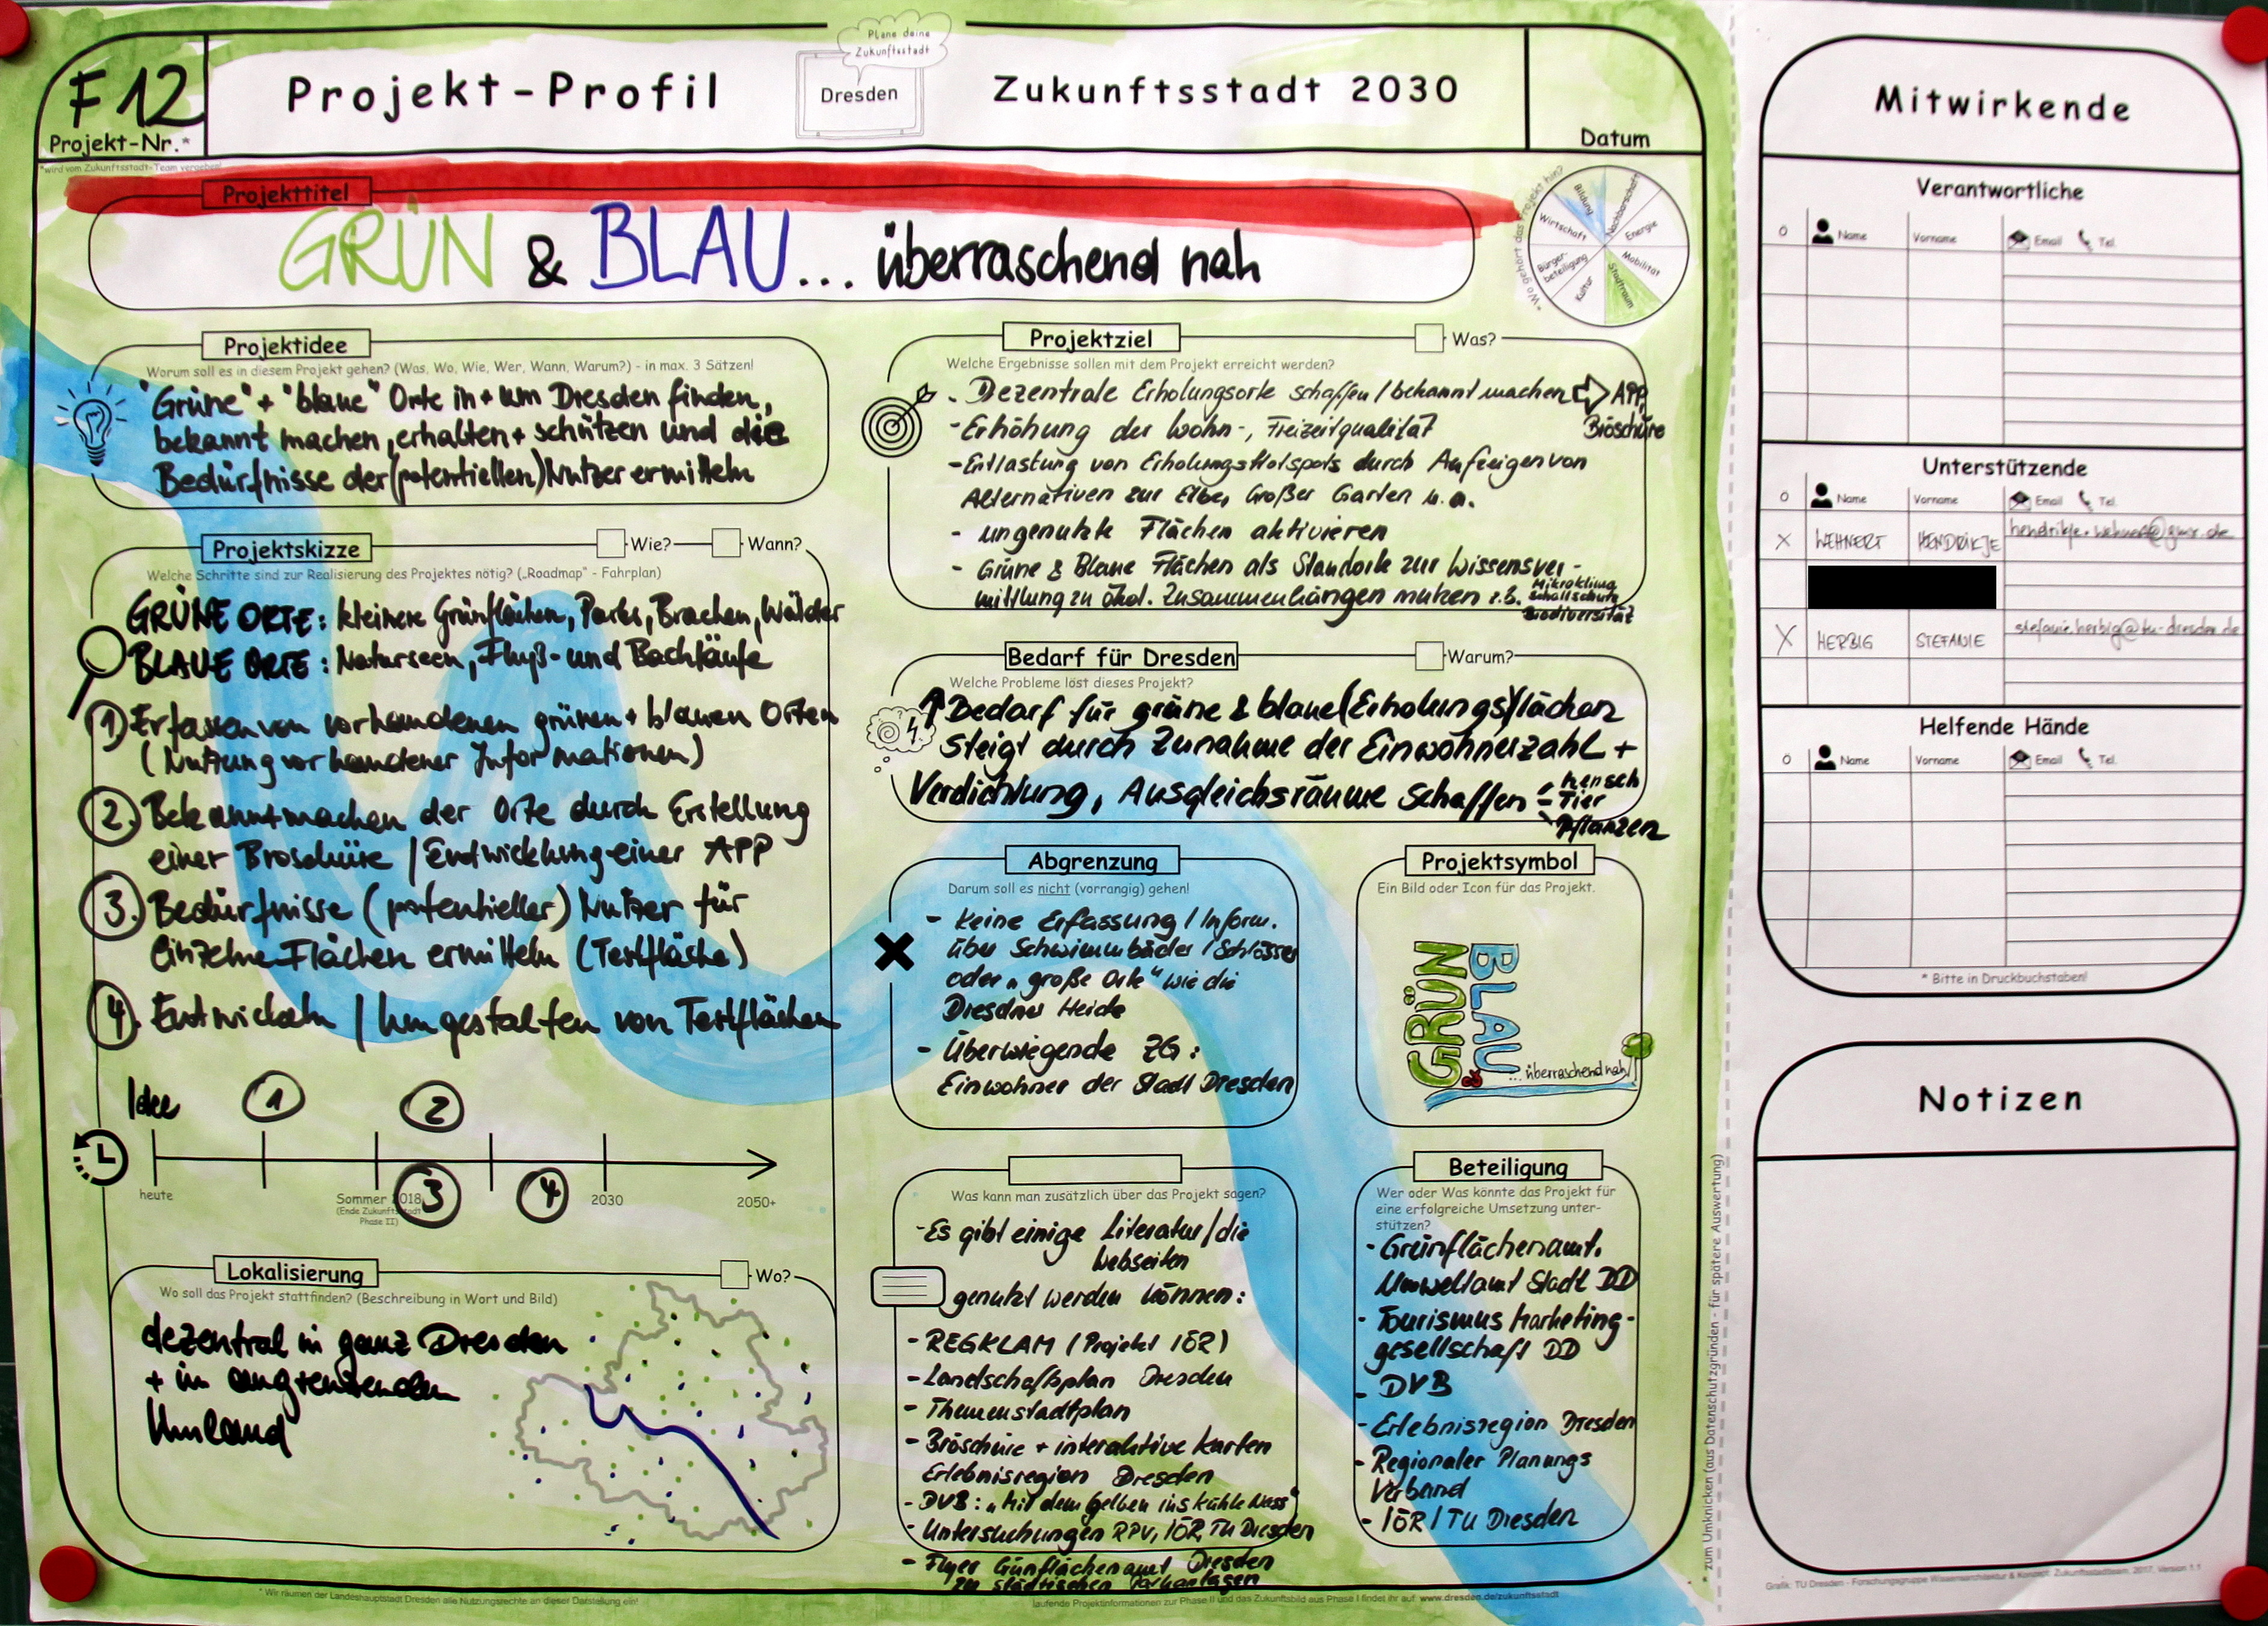 F12
Projekt-Nr.*
*wird vom Zukunftsstadt-Team vergeben!
Projekt-Profil
Plane deine
Zukunftsstadt
Dresden
Zukunftsstadt 2030
Datum
Projekttitel
GRÜN & BLAU... überraschend nah
*Wo gehört das Projekt hin?
Bildung
Nachbarschaft
Energie
Mobilität
Stadtraum
Kultur
Bürger-
beteiligung
Wirtschaft
Projektidee
Worum soll es in diesem Projekt gehen? (Was, Wo, Wie, Wer, Wann, Warum?) - in max. 3 Sätzen!
"Grüne" + "blaue" Orte in + um Dresden finden,
bekannt machen, erhalten + schützen und die
Bedürfnisse der (potentiellen) Nutzer ermitteln
Projektskizze
Wie?
Wann?
Welche Schritte sind zur Realisierung des Projektes nötig? („Roadmap" - Fahrplan)
GRÜNE ORTE: kleinere Grünflächen, Parks, Brachen, Wälder
BLAUE ORTE: Naturseen, Fluß- und Bachläufe
1) Erfassen von vorhandenen grünen + blauen Orten
(Nutzung vorhandener Informationen)
2. Bekanntmachen der Orte durch Erstellung
einer Broschüre / Entwicklung einer APP
3. Bedürfnisse (potentieller) Nutzer für
einzelne Flächen ermitteln (Testfläche)
4. Entwickeln / Umgestalten von Testflächen
Idee
1
2
3
4
heute
Sommer 2018
(Ende Zukunftsstadt
Phase II)
2030
2050+
Lokalisierung
Wo?
Wo soll das Projekt stattfinden? (Beschreibung in Wort und Bild)
dezentral in ganz Dresden
+ im angrenzenden
Umland
Projektziel
Was?
Welche Ergebnisse sollen mit dem Projekt erreicht werden?
- Dezentrale Erholungsorte schaffen / bekannt machen ⇨ APP,
Broschüre
- Erhöhung der Wohn-, Freizeitqualität
- Entlastung von Erholungshotspots durch Aufzeigen von
Alternativen zur Elbe, Großer Garten u.a.
- ungenutzte Flächen aktivieren
- Grüne & Blaue Flächen als Standorte zur Wissensver-
mittlung zu ökol. Zusammenhängen nutzen z.B. Mikroklima
Schallschutz
Biodiversität
Bedarf für Dresden
Warum?
Welche Probleme löst dieses Projekt?
↑ Bedarf für grüne & blaue (Erholungs)flächen
steigt durch Zunahme der Einwohnerzahl +
Verdichtung, Ausgleichsräume schaffen - Mensch
- Tier
- Pflanzen
Abgrenzung
Darum soll es nicht (vorrangig) gehen!
- keine Erfassung / Inform.
über Schwimmbäder / Schlösser
oder „große Orte" wie die
Dresdner Heide
- Überwiegende ZG:
Einwohner der Stadt Dresden
Projektsymbol
Ein Bild oder Icon für das Projekt.
GRÜN
BLAU
... überraschend nah
Was kann man zusätzlich über das Projekt sagen?
- Es gibt einige Literatur / die
Webseiten
genutzt werden können:
- REGKLAM (Projekt IÖR)
- Landschaftsplan Dresden
- Themenstadtplan
- Broschüre + interaktive Karten
Erlebnisregion Dresden
- DVB: „Mit dem Gelben ins kühle Nass"
- Untersuchungen RPV, IÖR, TU Dresden
- Flyer Grünflächenamt Dresden
zu städtischen Parkanlagen
Beteiligung
Wer oder Was könnte das Projekt für
eine erfolgreiche Umsetzung unter-
stützen?
- Grünflächenamt.
Umweltamt Stadt DD
- Tourismus Marketing-
gesellschaft DD
- DVB
- Erlebnisregion Dresden
- Regionaler Planungs
Verband
- IÖR / TU Dresden
* Wir räumen der Landeshauptstadt Dresden alle Nutzungsrechte an dieser Darstellung ein!
laufende Projektinformationen zur Phase II und das Zukunftsbild aus Phase I findet ihr auf www.dresden.de/zukunftsstadt
* zum Umknicken (aus Datenschutzgründen - für spätere Auswertung)
Mitwirkende
Verantwortliche
Name Vorname Email Tel.
Unterstützende
Name Vorname Email Tel.
X WEHNERT HENDRIKJE hendrikje.wehnert@gmx.de
X HERBIG STEFANIE stefanie.herbig@tu-dresden.de
Helfende Hände
Name Vorname Email Tel.
* Bitte in Druckbuchstaben!
Notizen
Grafik: TU Dresden - Forschungsgruppe Wissensarchitektur & Konzept: Zukunftsstadtteam, 2017, Version 1.1